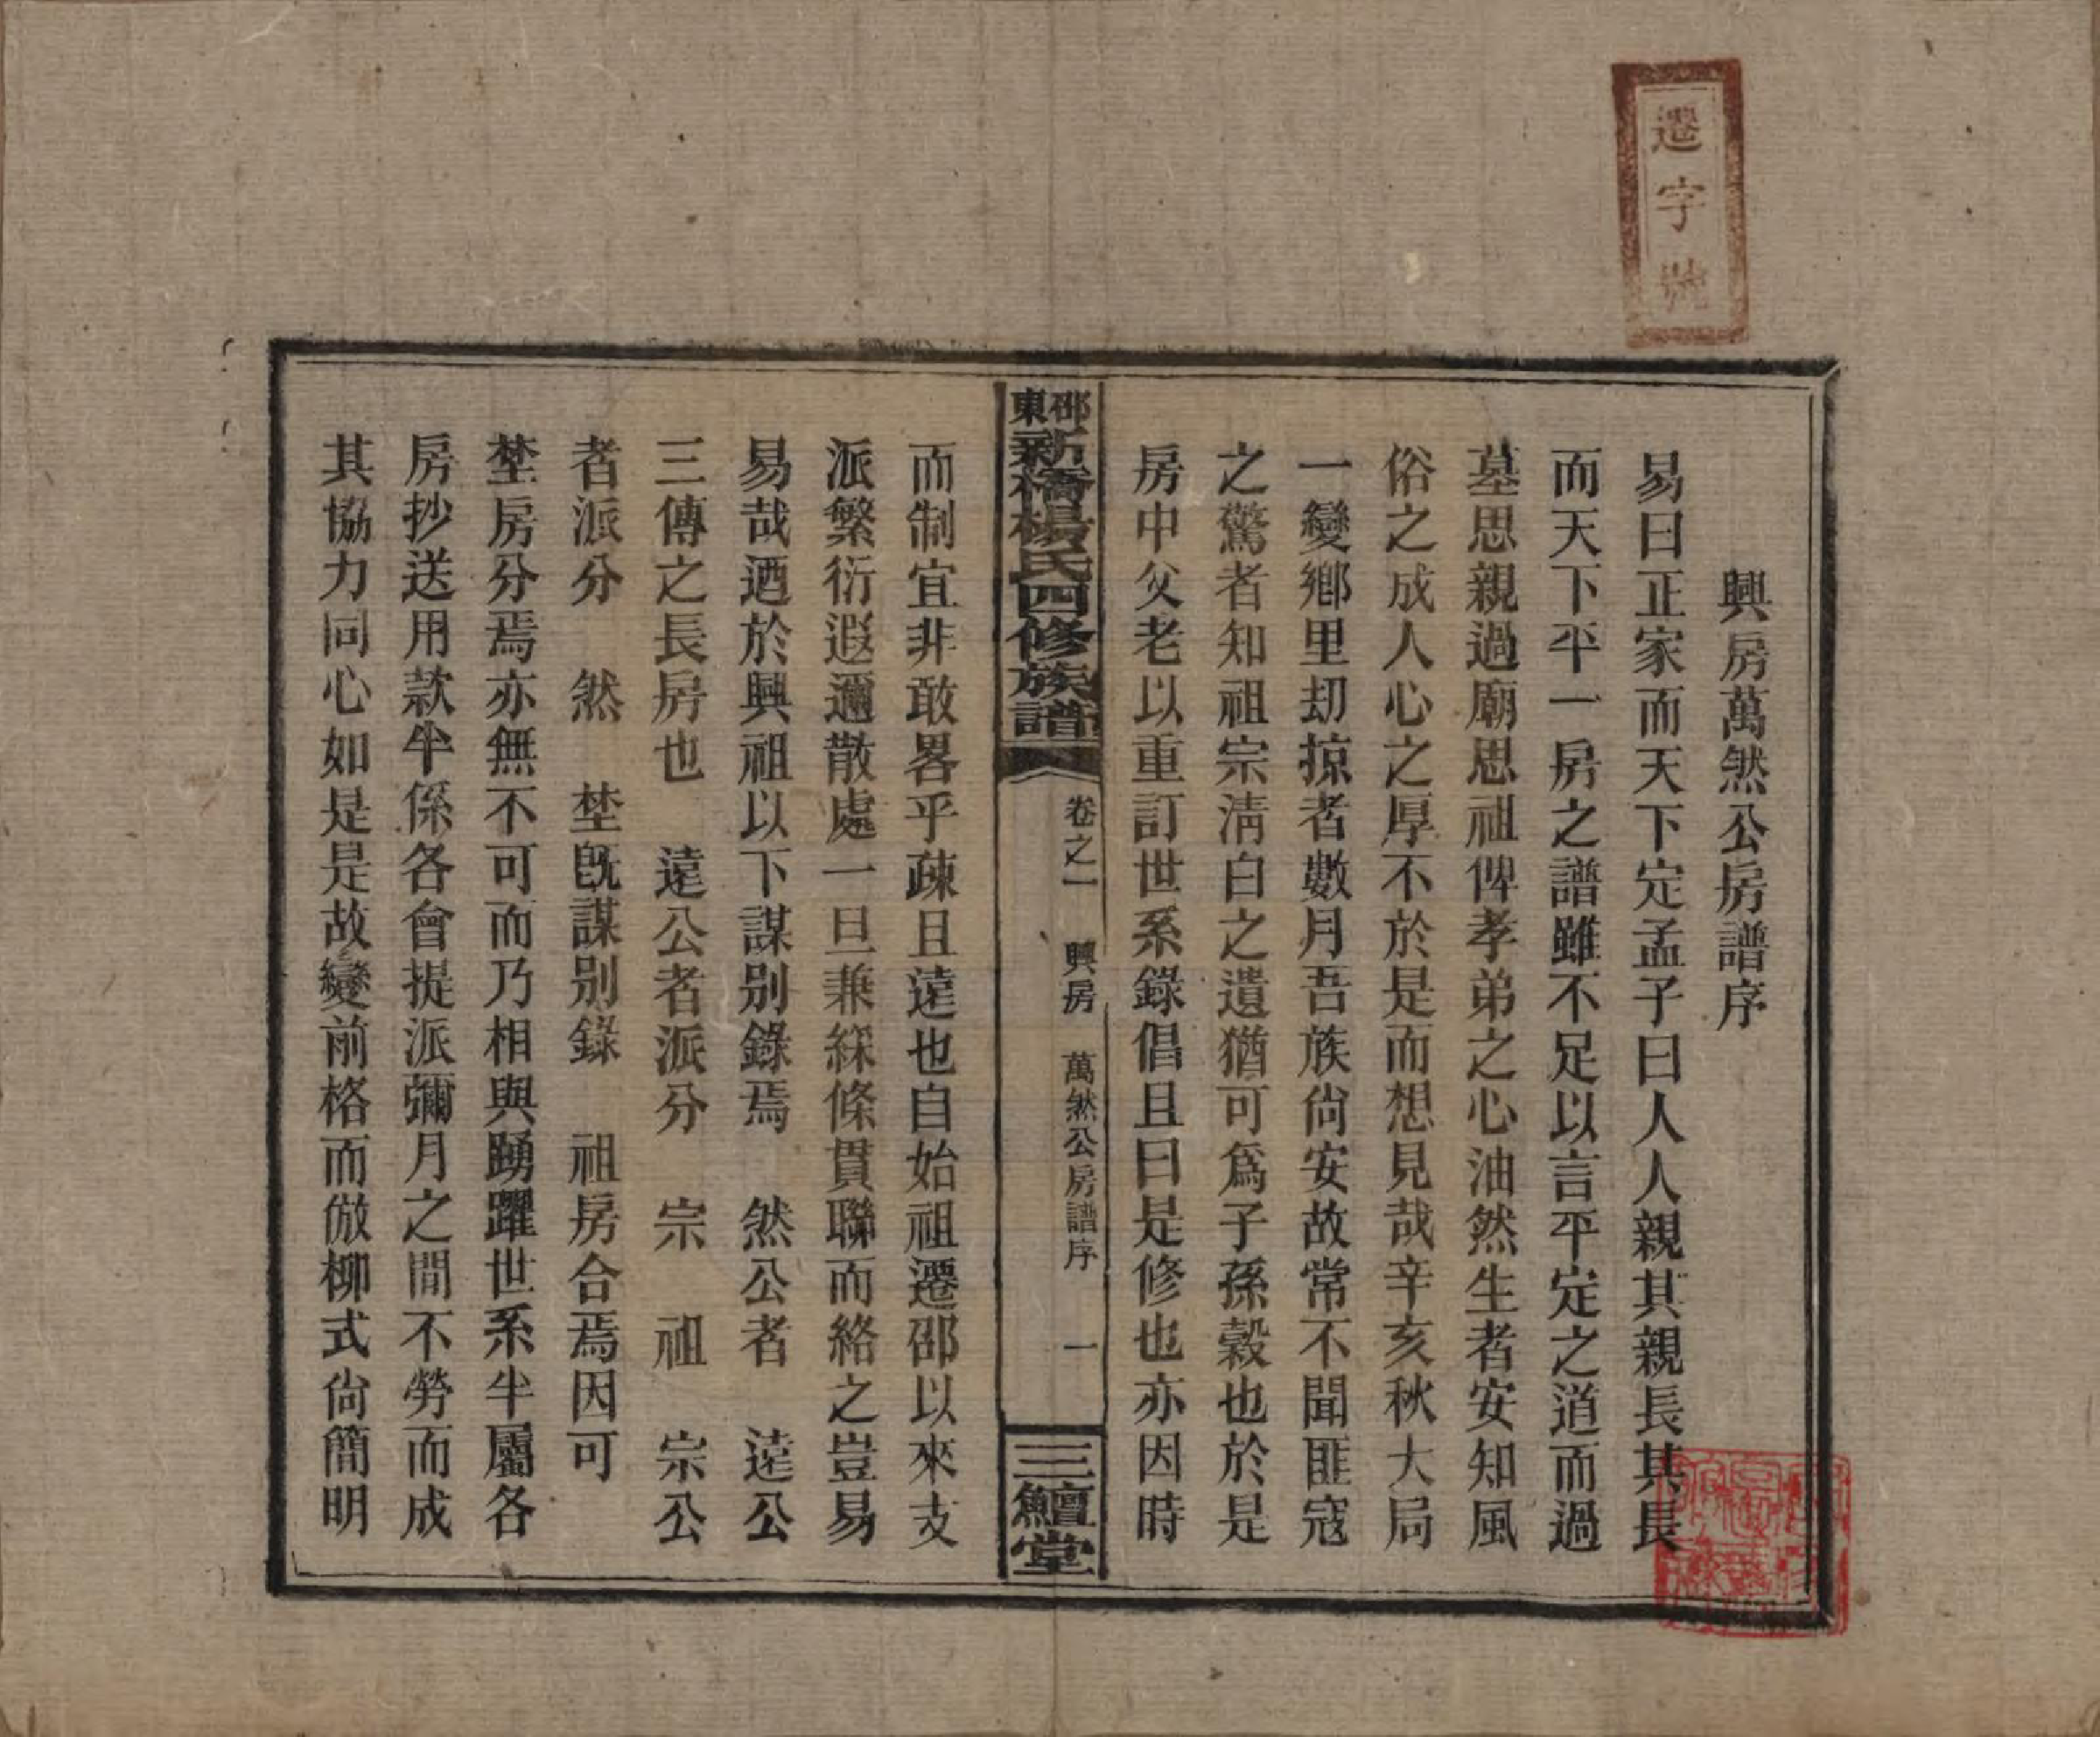 遷字號
興房萬然公房譜序
易曰正家而天下定孟子曰人人親其親長其長
而天下平一房之譜雖不足以言平定之道而過
墓思親過廟思祖俾孝弟之心油然生者安知風
俗之成人心之厚不於是而想見哉辛亥秋大局
一變鄕里刧掠者數月吾族尙安故常不聞匪寇
之驚者知祖宗淸白之遺猶可爲子孫穀也於是
房中父老以重訂世系錄倡且曰是修也亦因時
邵東新橋楊氏四修族譜
卷之一 興房 萬然公房譜序 一
三鱣堂
而制宜非敢畧乎疎且遠也自始祖遷邵以來支
派繁衍遐邇散處一旦兼綵條貫聯而絡之豈易
易哉迺於興祖以下謀別錄焉 然公者 遠公
三傳之長房也 遠公者派分 宗 祖 宗公
者派分 然 埜旣謀別錄 祖房合焉因可
埜房分焉亦無不可而乃相與踴躍世系半屬各
房抄送用款半係各會提派彌月之間不勞而成
其協力同心如是是故變前格而倣柳式尙簡明